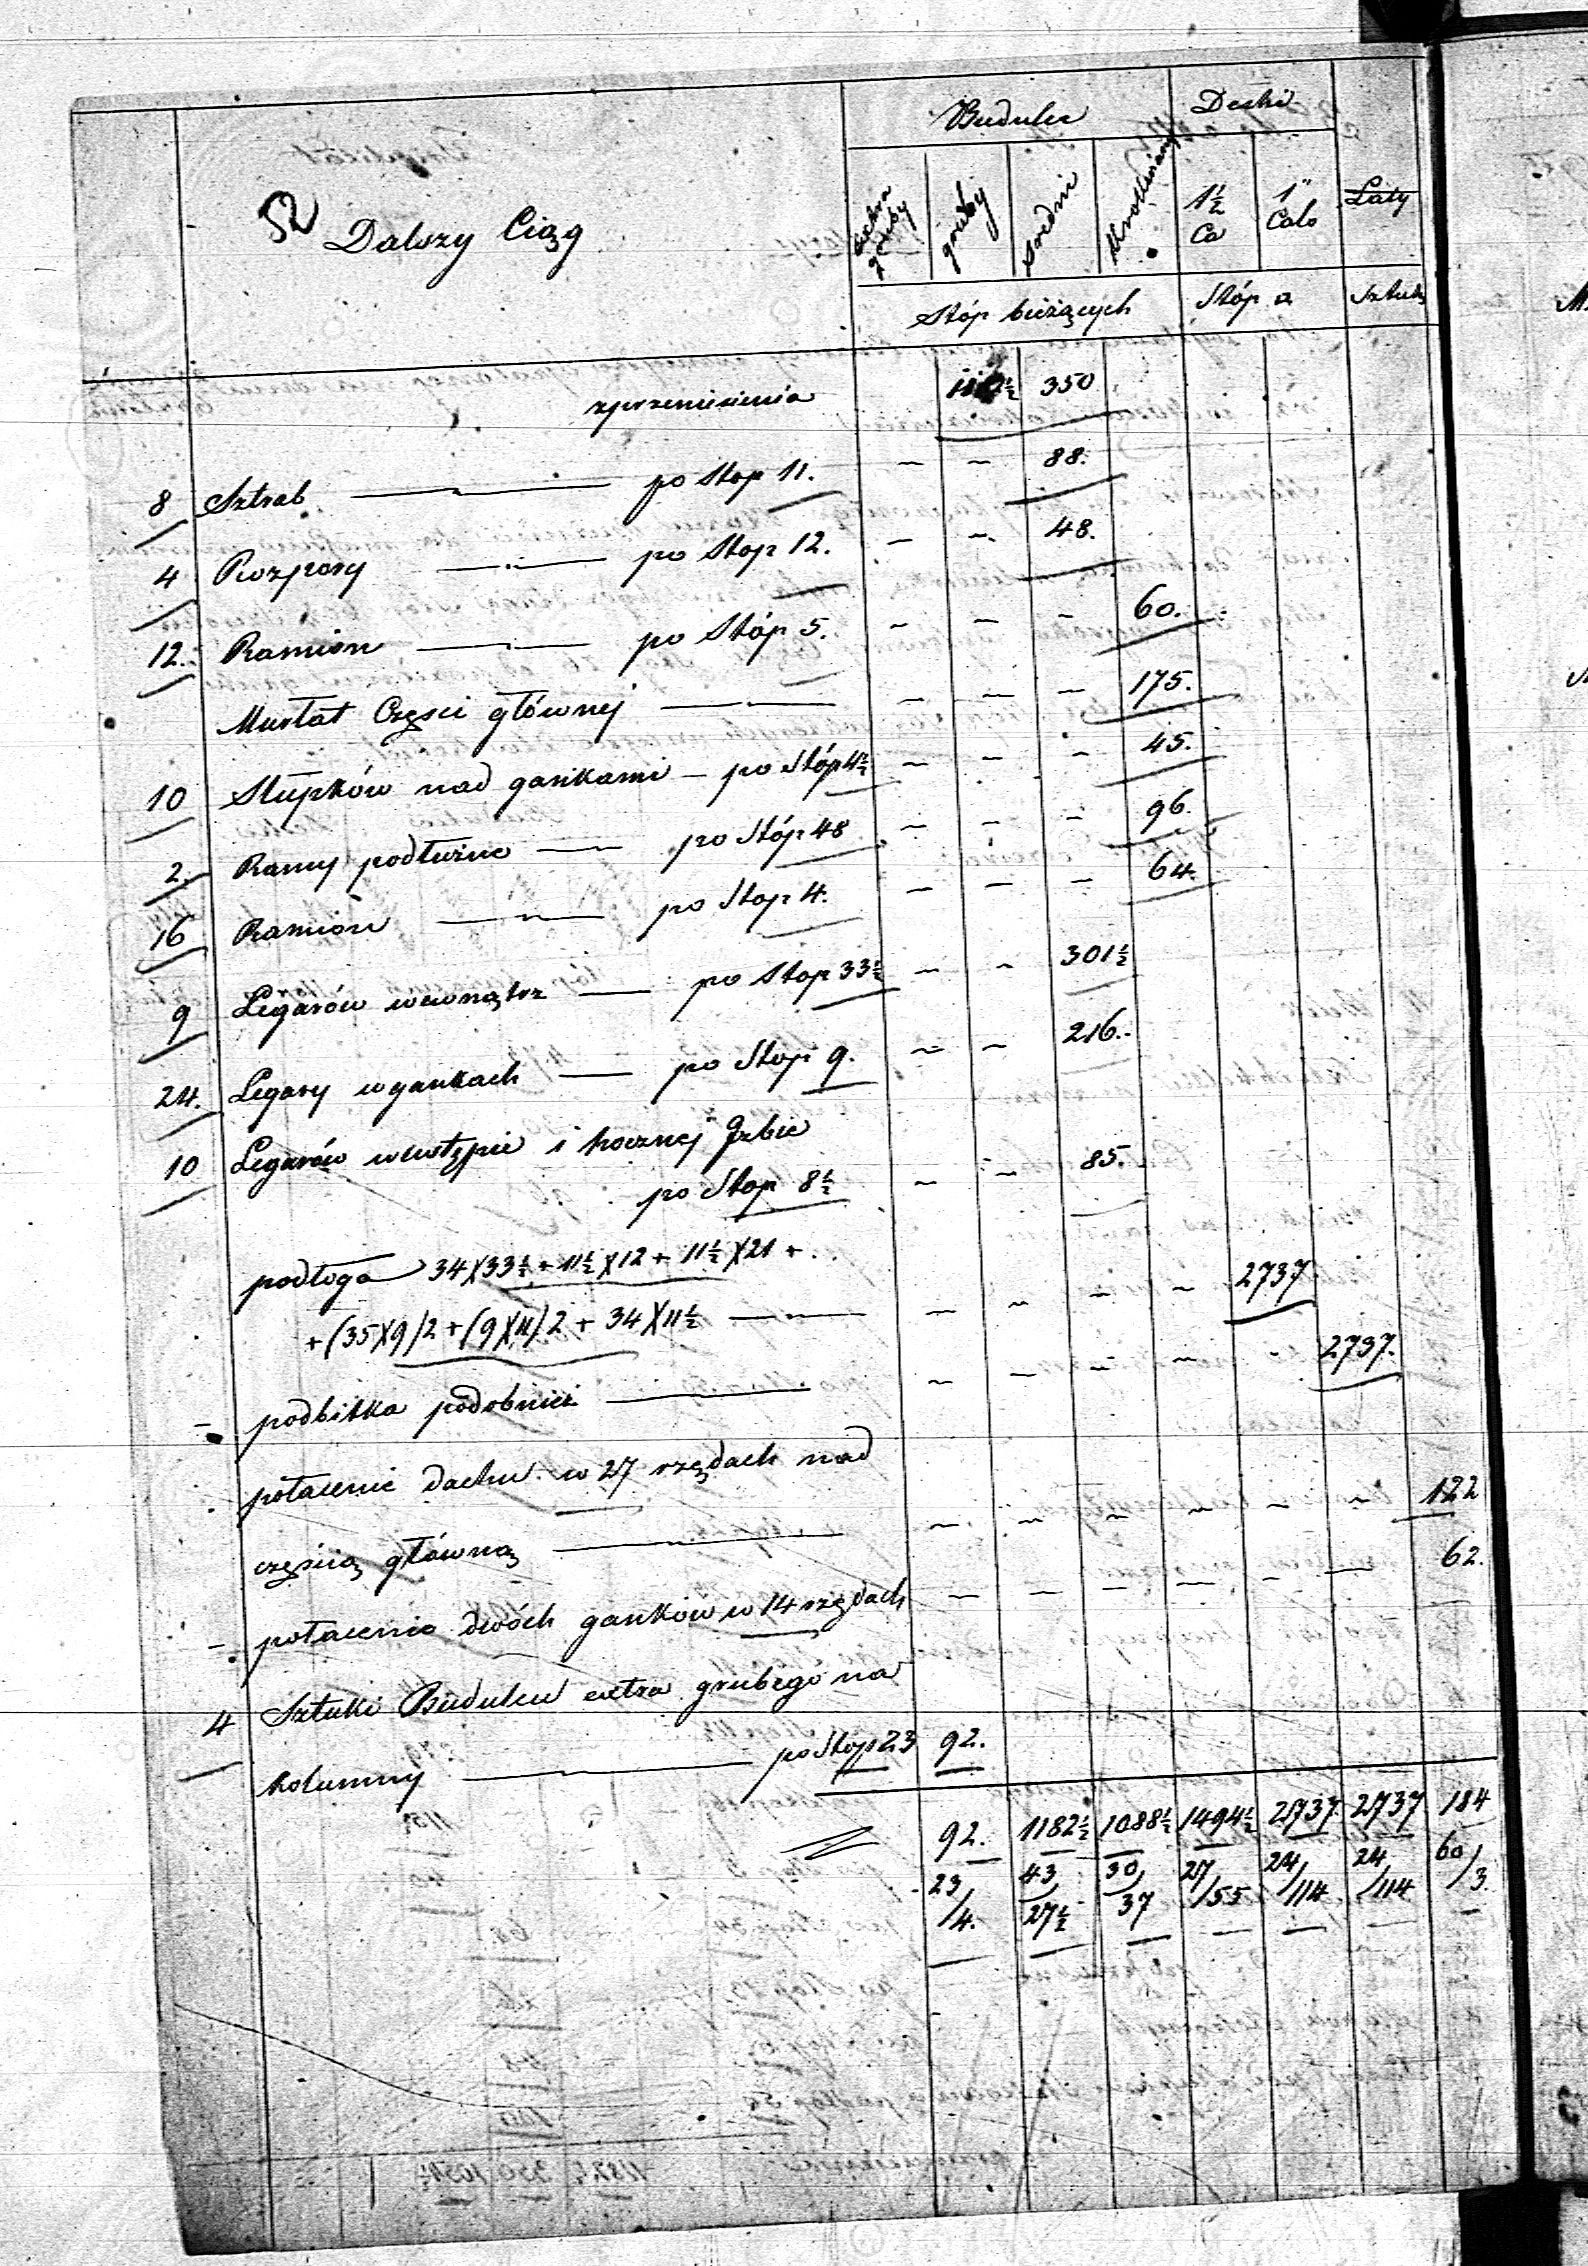 Budulec Deski
extra gruby gruby średni Krokwiany 1½ Ca 1" Calo Łaty
52 Dalszy Ciąg
Stóp bieżących Stóp □ Sztuk
zprzeniesienia 1182½ 350
8 Sztrab po Stop 11. 88.
4 Rozpory po Stop 12. 48.
12. Ramion po Stóp 5. 60.
Murłat Częsci głównej 175.
10 Słupków nad gankami po Stóp 4½ 45.
2. Ramy podłużne po Stóp 48 96.
16 Ramion po Stop 4. 64.
9 Legarów wewnątrz po Stop 33½ 301½
24. Legary w gankach po Stop 9. 216.
10 Legarów w wstępie i bocznej Izbie
po Stop 8½ 85.
podłoga 34X33½ + 11½X12 + 11½X21 +
+ (35X9)2 + (9X11)2 + 34X11½ 2737
podbitka podobnież 2737.
połacenie dachu w 27 rzędach nad
częścią główną 122
połacenie dwóch ganków w 14 rzędach 62.
4 Sztuki Budulcu extra grubego na
kolumny po Stop 23 92.
92. 1182½ 1088½ 1494½ 2737 2737 184
23/4. 43/27½ 30/37 27/55 24/114 24/114 60/3